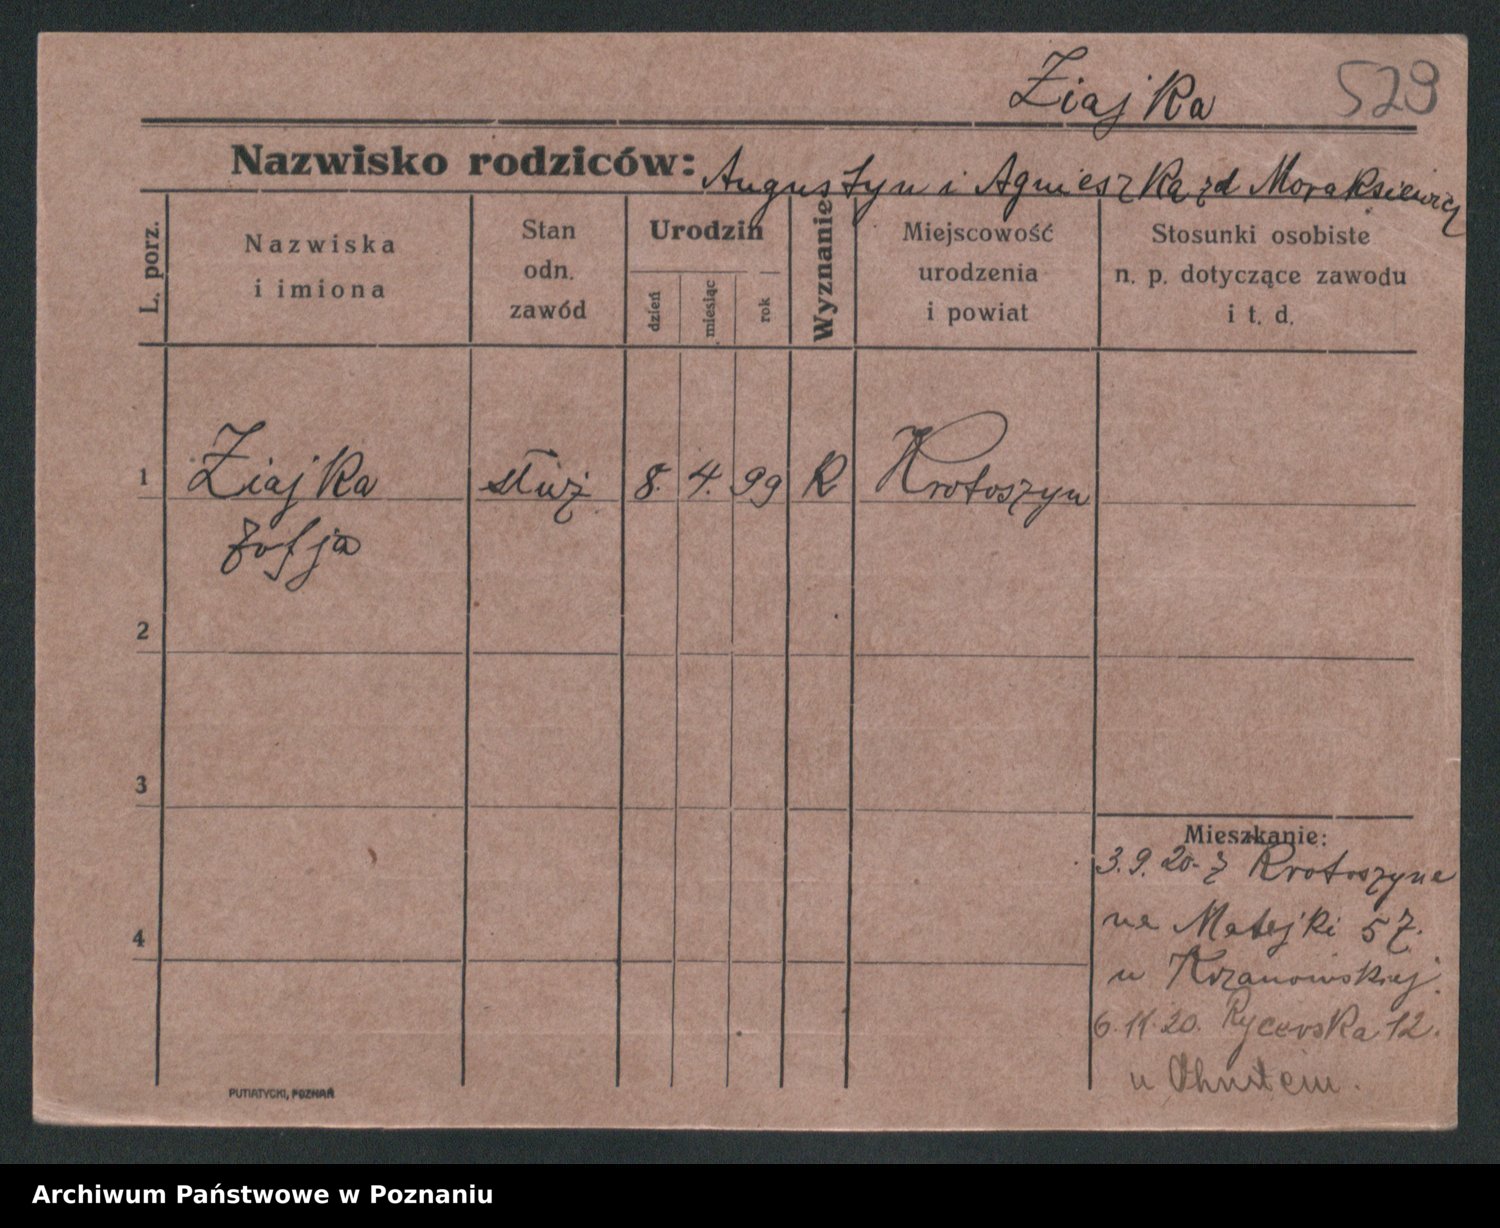 Ziajka 529
Nazwisko rodziców: Augustyn i Agnieszka zd Moraksiewicz
L. porz.
Nazwiska
i imiona
Stan
odn.
zawód
Urodzin
dzień
miesiąc
rok
Wyznanie
Miejscowość
urodzenia
i powiat
Stosunki osobiste
n. p. dotyczące zawodu
i t. d.
1 Ziajka służ 8. 4. 99 R Krotoszyn
Zofja
2
3
4
Mieszkanie:
3.9.20. z Krotoszyna
na Matejki 57.
u Krzanowskiej.
6.11.20. Rycerska 12.
u
PUTIATYCKI, POZNAŃ
Archiwum Państwowe w Poznaniu